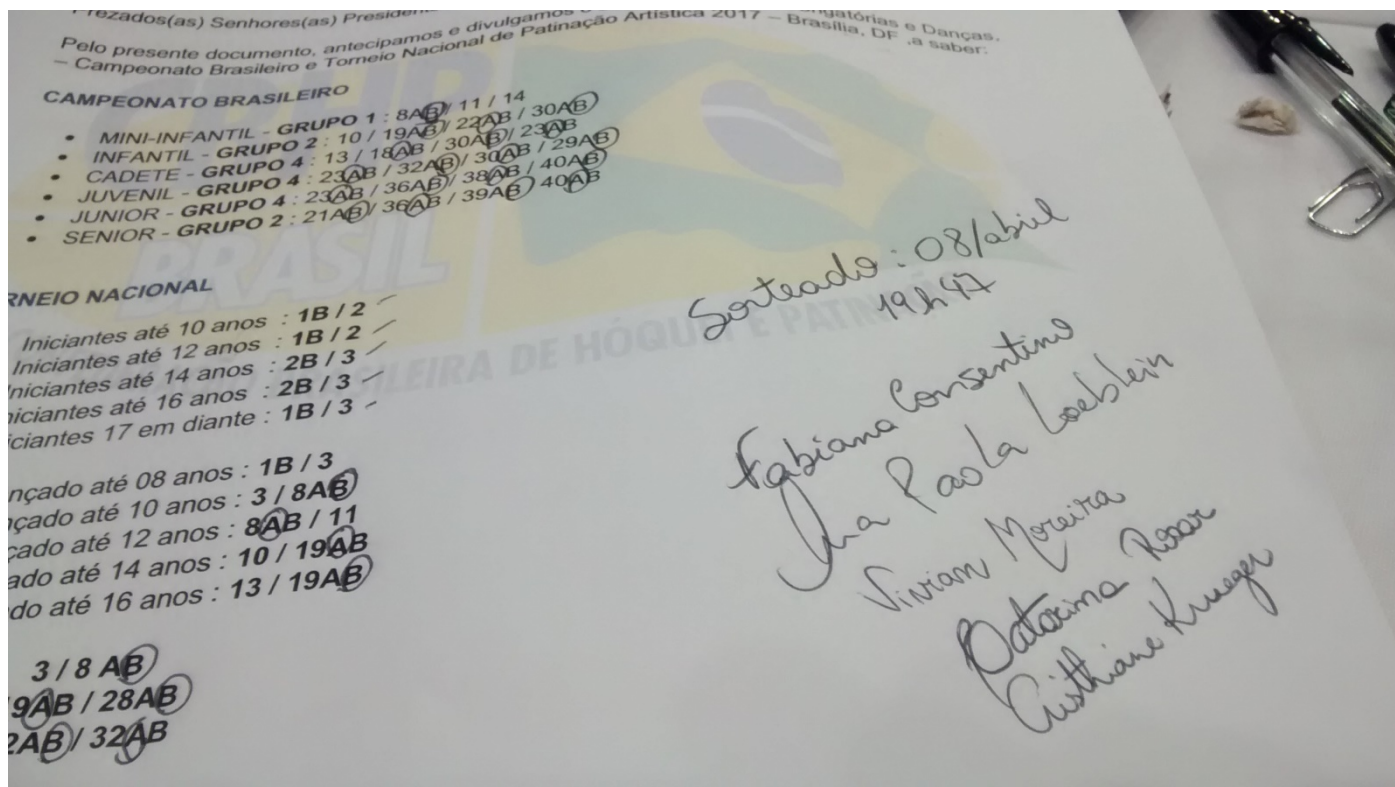 Prezados(as) Senhores(as)
Danças.
Pelo presente documento, antecipamos e divulgamos
– Campeonato Brasileiro e Torneio Nacional de Patinação Artística 2017 – Brasília, DF ,a saber:
CAMPEONATO BRASILEIRO
• MINI-INFANTIL - GRUPO 1 : 8AB / 11 / 14
• INFANTIL - GRUPO 2 : 10 / 19AB / 22AB / 30AB
• CADETE - GRUPO 4 : 13 / 18AB / 30AB / 23AB
• JUVENIL - GRUPO 4 : 23AB / 32AB / 30AB / 29AB
• JUNIOR - GRUPO 4 : 23AB / 36AB / 38AB / 40AB
• SENIOR - GRUPO 2 : 21AB / 36AB / 39AB 40AB
BRASIL
RNEIO NACIONAL
Iniciantes até 10 anos : 1B / 2
Iniciantes até 12 anos : 1B / 2
niciantes até 14 anos : 2B / 3
niciantes até 16 anos : 2B / 3
ciantes 17 em diante : 1B / 3
SILEIRA DE HÓQUEI E PATIN
nçado até 08 anos : 1B / 3
çado até 10 anos : 3 / 8AB
cado até 12 anos : 8AB / 11
ado até 14 anos : 10 / 19AB
do até 16 anos : 13 / 19AB
3 / 8 AB
9AB / 28AB
2AB / 32AB
Sorteado : 08/abril
19h47
Fabiana Consentino
Ana Paola Loeblein
Vivian Moreira
Catarina Rosar
Cristhiane Krueger